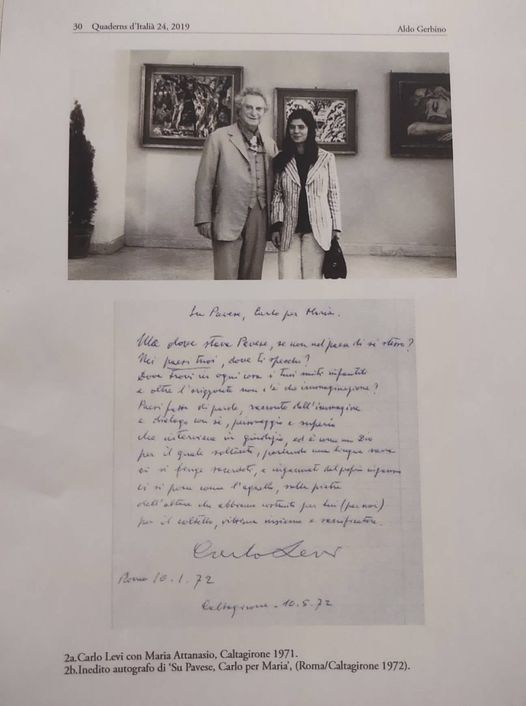 30 Quaderns d'Italià 24, 2019
Aldo Gerbino
Su Pavese, Carlo per Maria.
Ma dove stava Pavese, se non nel paese di se stesso?
Nei paesi tuoi, dove ti specchi?
Dove trovi in ogni cosa i tuoi miti infantili
e oltre l'orizzonte non c'è che immaginazione?
Paesi di parole, racconto dell'immagine
e dialogo con sé, personaggio e
che interviene in giudizio, ed è come un Dio
per il quale soltanto, parlando una lingua sacra
ci si finge sacerdoti, e
ci si pone come l'agnello, sulla pietra
dell'altare che abbiamo costruito per lui (per noi)
per il coltello, vittima insieme e sacrificatore.
Carlo Levi
Roma 10.1.72
Caltagirone - 10.5.72
2a.Carlo Levi con Maria Attanasio, Caltagirone 1971.
2b.Inedito autografo di 'Su Pavese, Carlo per Maria', (Roma/Caltagirone 1972).